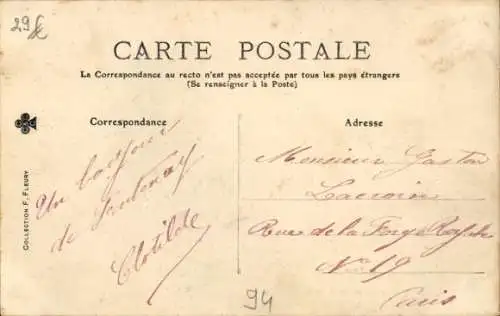 29£
CARTE POSTALE
La Correspondance au recto n'est pas acceptée par tous les pays étrangers
(Se renseigner à la Poste)
Correspondance
Un bonjour
de Fontenay
Clotilde
COLLECTION F. FLEURY
94
Adresse
Monsieur Gaston
Lacroix
Rue de la Forge Royale
No 19
Paris